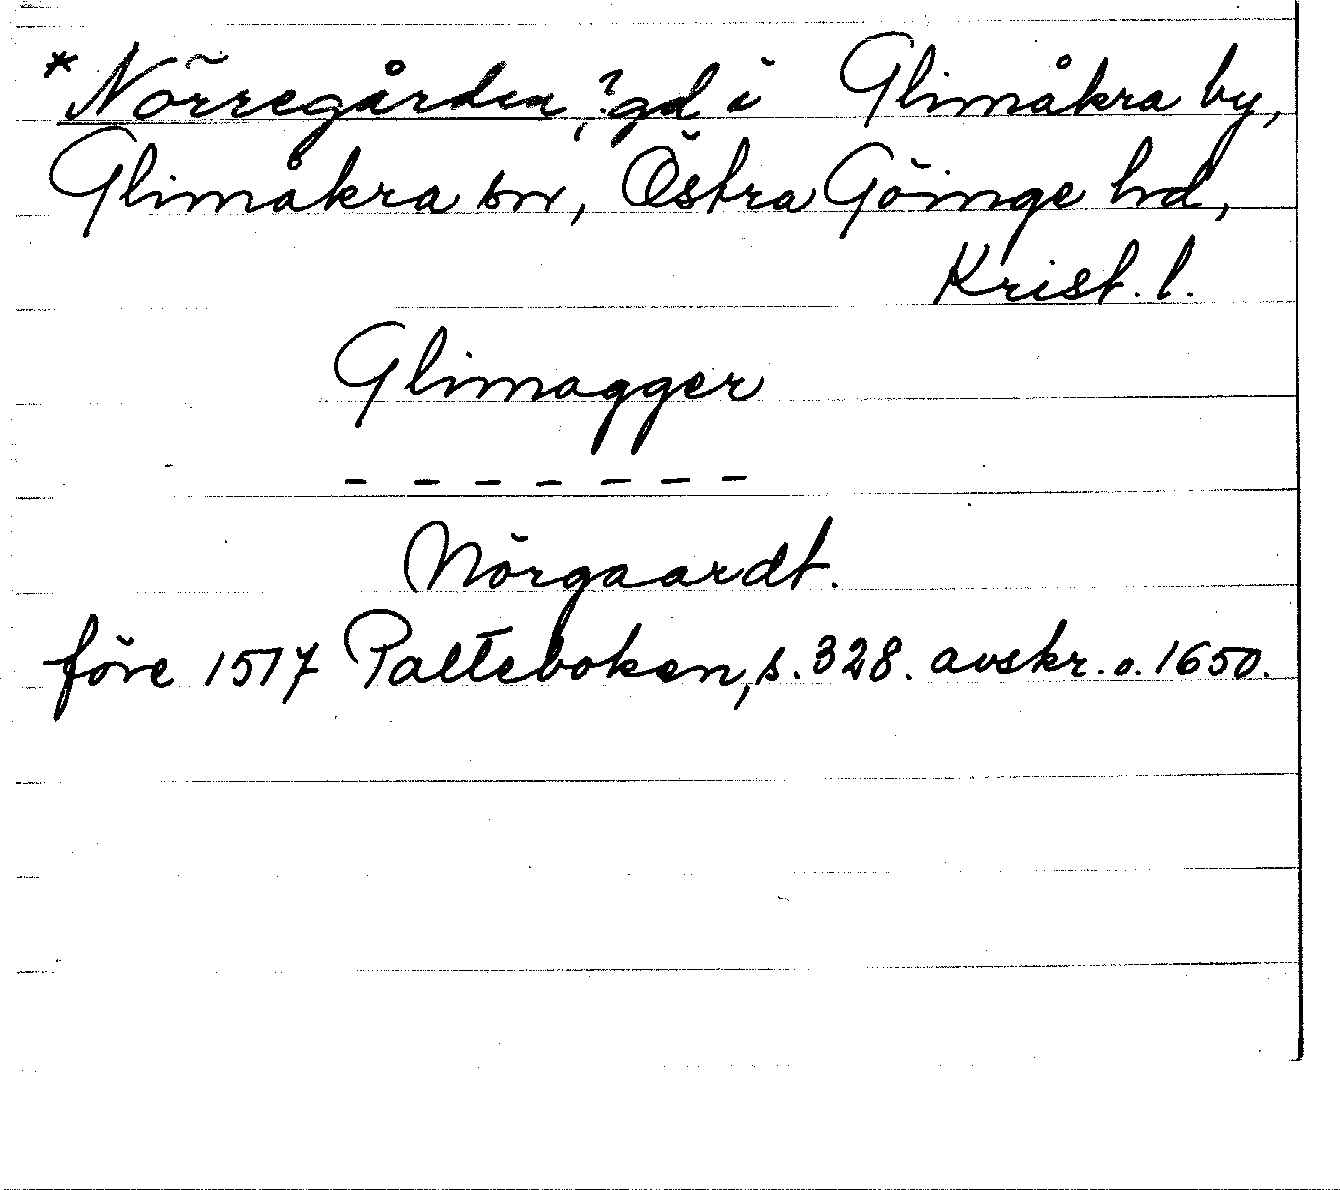 *Nörregården, ?gd i Glimåkra by,
Glimåkra sn, Östra Göinge hd,
Krist. l.
Glimagger
- - - - - - -
Nörgaardt.
före 1517 Palteboken, s. 328. avskr. o. 1650.